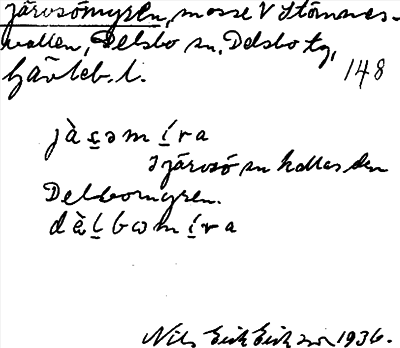 Järvsömyren, mosse V Stömnes-
vallen, Delsbo sn, Delsbo tg,
Gävleb. l.
148
jà s̱ə m í̱ r a
I järvsö sn kallas den
Delsbomyren.
d ɛ̀ ḻ b ω m í̱ r a
Nils Erik Eriksson 1936.